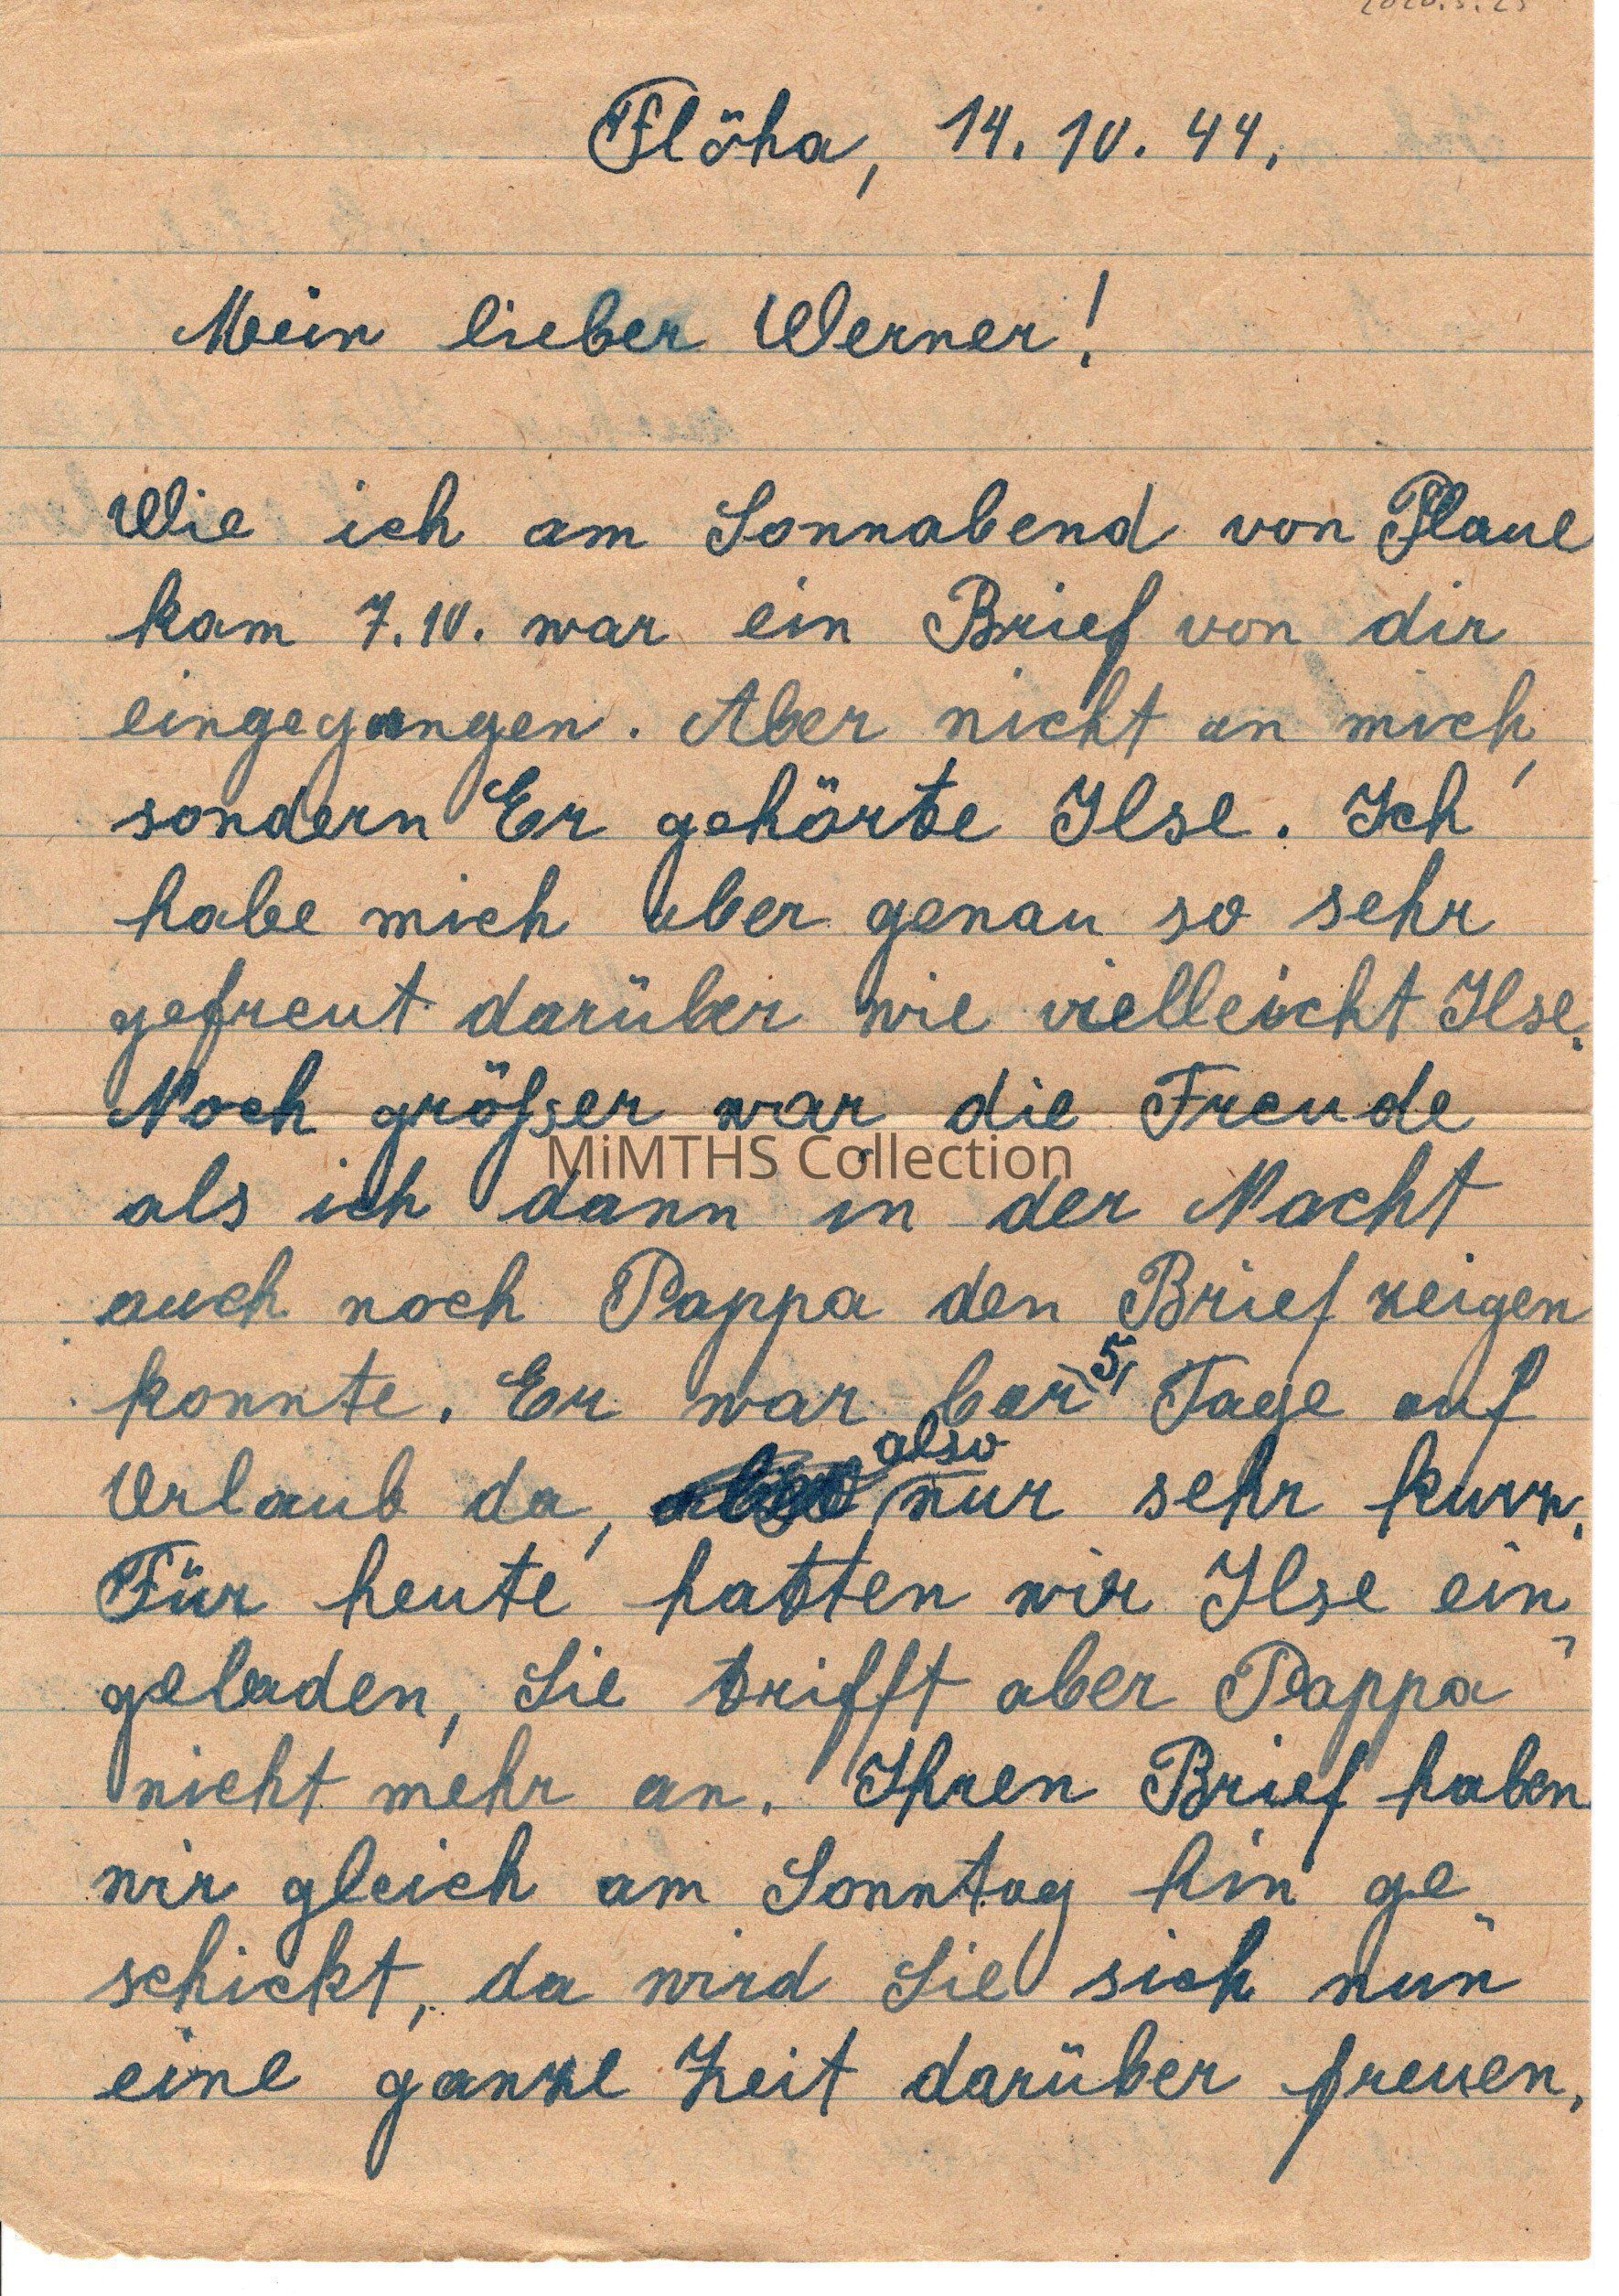 2020.5.25
Flöha, 14. 10. 44.
Mein lieber Werner!
Wie ich am Sonnabend von Plaue
kam 7.10. war ein Brief von dir
eingegangen. Aber nicht an mich,
sondern Er gehörte Ilse. Ich
habe mich aber genau so sehr
gefreut darüber wie vielleicht Ilse.
Noch größer war die Freude
MiMTHS Collection
als ich dann in der Nacht
auch noch Pappa den Brief zeigen
konnte. Er war bar 5 Tage auf
Urlaub da, also nur sehr kurz.
Für heute hatten wir Ilse ein"
geladen, Sie trifft aber Pappa
nicht mehr an. Ihren Brief haben
wir gleich am Sonntag hin ge"
schickt, da wird Sie sich nun
eine ganze Zeit darüber freuen,